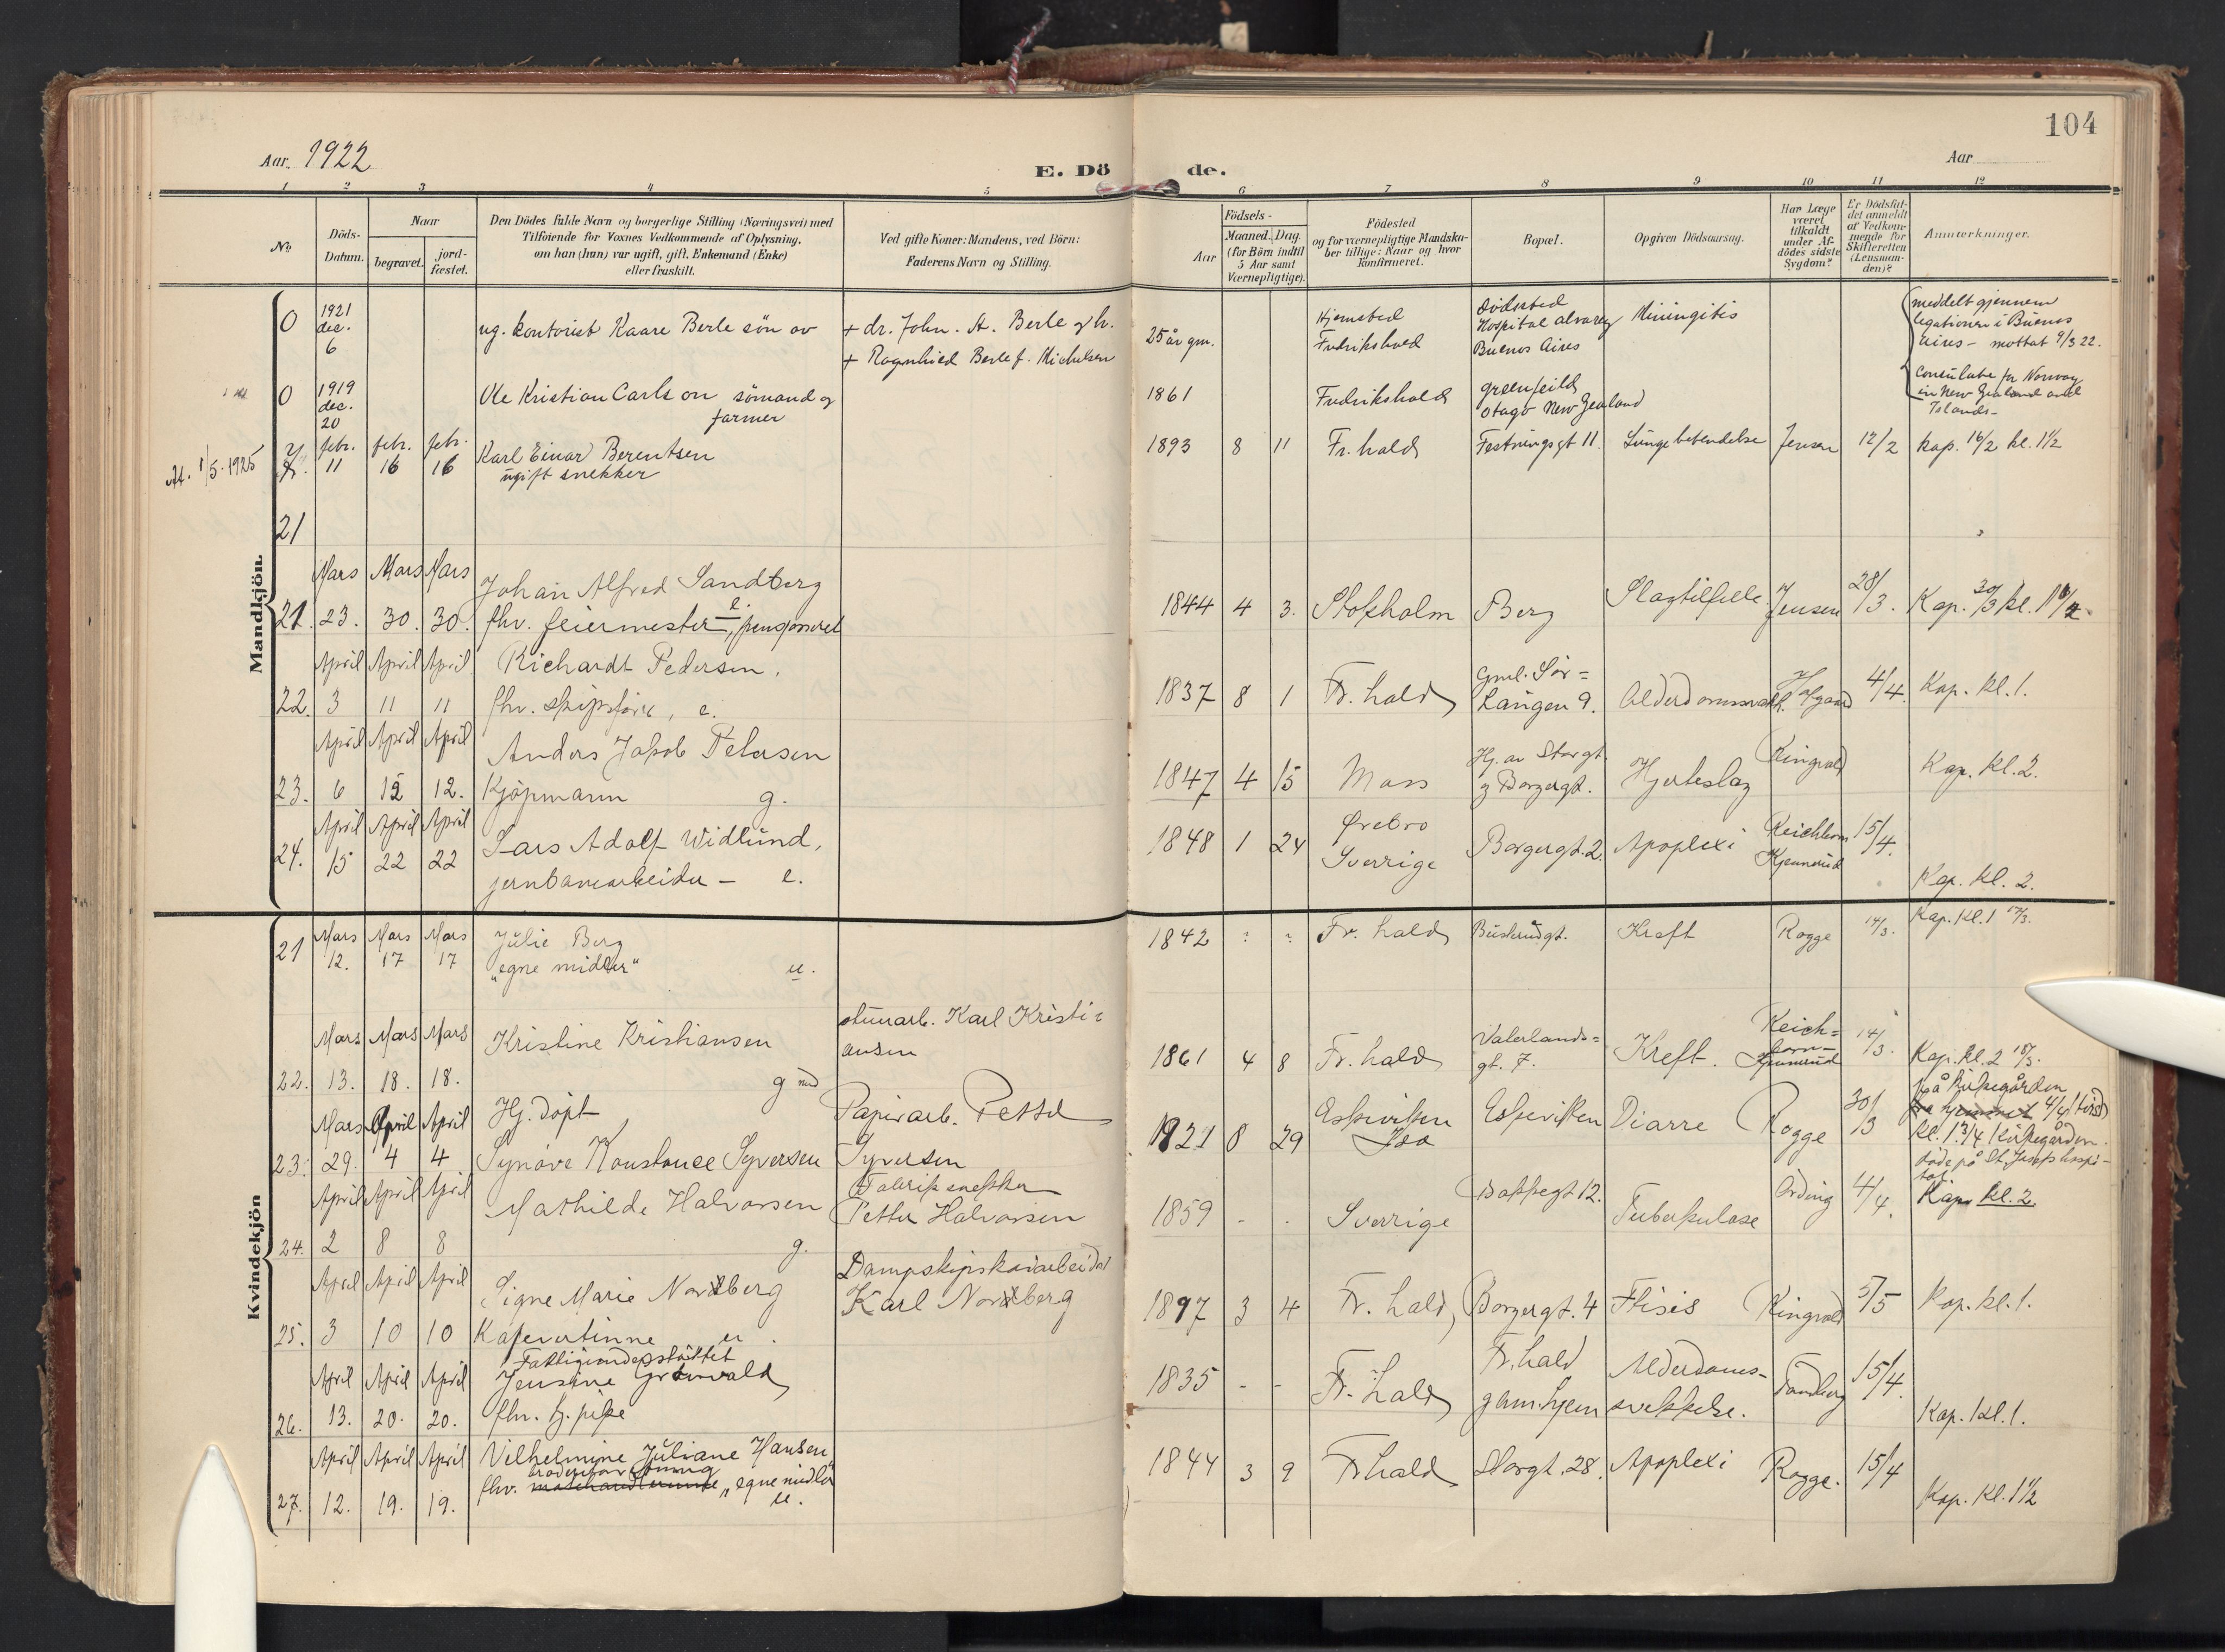 104
Aar. 1922
E. Dö de.
Aar
1 2 3 4 5 6 7 8 9 10 11 12
No
Döds-Datum.
Naar
begravet.
jord-fæstet.
Den Dödes fulde Navn og borgerlige Stilling (Næringsvei) med
Tilföiende for Voxnes Vedkommende af Oplysning,
om han (hun) var ugift, gift, Enkemand (Enke)
eller fraskilt.
Ved gifte Koner: Mandens, ved Börn:
Faderens Navn og Stilling.
Födsels-
Aar
Maaned. Dag.
(for Börn indtil
5 Aar samt
Værnepligtige).
Födested
og for værnepligtige Mandska-
ber tillige: Naar og hvor
konfirmeret.
Bopæl.
Opgiven Dödsaarsag.
Har Læge
været
tilkaldt
under Af-
dödes sidste
Sygdom?
Er Dödsfal-
det anmeldt
af Vedkom-
mende for
Skifteretten
(Lensman-
den)?
Anmærkninger.
Mandkjön.
0 1921 dec. 6 ug. kontorist Kaare Berle sön av + dr. John. A. Berle og h.
+ Ragnhild Berle f. Michelsen
25 år gm. Hjemsted Fredrikshald
Dödssted Hospital alvarez Buenos Aires Miningitis
meddelt gjennem
legationen i Buenos
Aires - mottat 9/3 22.
0 1919 dec. 20 Ole Kristian Carlson sömand og
farmer
1861 Fredrikshald greenfeild Otago New Zealand
Consulate for Norway
in New Zealand and
Islands-
At. 1/5-1925 febr. 11 febr. 16 febr. 16 Karl Einar Berentsen
ugift snekker
1893 8 11 Fr.hald Festningsgt 11. Lungebetendelse Jensen 12/2 kap. 16/2 kl. 1 1/2
21
21. Mars 23. Mars 30. Mars 30. Johan Alfred Sandberg
fhv. feiermester, pensjoneret e.
1844 4 3. Stokholm Berg Slagtilfelle Jensen 28/3. Kap. 30/3 kl.
22. April 3 April 11 April 11 Richardt Pedersen.
fhv. skipsförer, e.
1837 8 1 Fr. hald Gml. Sör=
Langen 9. Alderdomssvakh. 4/4. Kap. kl. 1.
23. April 6 April 12 April 12. Anders Jakob Petersen
Kjöpmann g.
1847 4 15 Moss Hj. av Storgt.
g Borgergt. Hjerteslag Ringvold Kap. Kl. 2.
24. April 15 April 22 April 22 Lars Adolf Widlund,
jernbanearbeider - e.
1848 1 24 Ørebro
Sverrige Borgergt. 2. Apoplexi Reichborn
Kjennerud 15/4. Kap. Kl. 2.
Kvindekjön
21 Mars 12. Mars 17 Mars 17 Julie Berg
"egne midler" u.
1842 ? ? Fr. hald Buskrudgt. Kreft Rogge 14/3. Kap. Kl. 1 17/3.
22. Mars 13. Mars 18. Mars 18. Kristine Kristiansen g
stenarb. Karl Kristi=
ansen
1861 4 8 Fr. hald Vaterlands=
gt. 7. Kreft. Reich=
born=
Kjennerud 14/3. Kap. kl. 2 18/3.
23. Mars 29. April 4 April 4 Hj. döpt
Synöve Konstanse Syversen
Papirarb. Petter
Syversen
1921 8 29 Eskeviken
Idd Eskeviken Diarre Rogge 30/3
på kirkegården
kl. 1 3/4 Kirkegården.
24. April 2 April 8 April 8 Mathilde Halvorsen g.
Fabriksnekker
Petter Halvorsen
1859 - - Sverrige Bakkegt 12. Tuberkulose Arding 4/4.
döde på St. Josefs hospi-
tal
Kap. kl. 2.
25. April 3 April 10 April 10 Signe Marie Nordberg
Kafevertinne u.
Dampskipskaiarbeider
Karl Nordberg
1897 3 4 Fr. hald Borgergt. 4 Ftisis Ringvold 5/5 Kap. kl. 1.
26. April 13. April 20. April 20. Fattigunderstöttet
Jensine Grönvald
fhv. tj. pike
1835 - - Fr. hald Fr. hald
gam.hjem Alderdoms-
svekkelse. Tandberg 15/4. Kap. kl. 1.
27. April 12. April 19. April 19. Vilhelmine Juliane Hansen
fhv. "egne midler"
u.
1844 3 9 Frhald Storgt. 28. Apoplexi Rogge. 15/4 Kap. Kl. 1 1/2